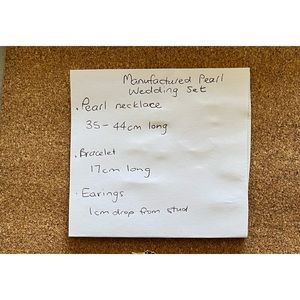 Manufactured Pearl
Wedding Set
. Pearl necklace
35 - 44cm long
. Bracelet
17cm long
. Earings
1cm drop from stud